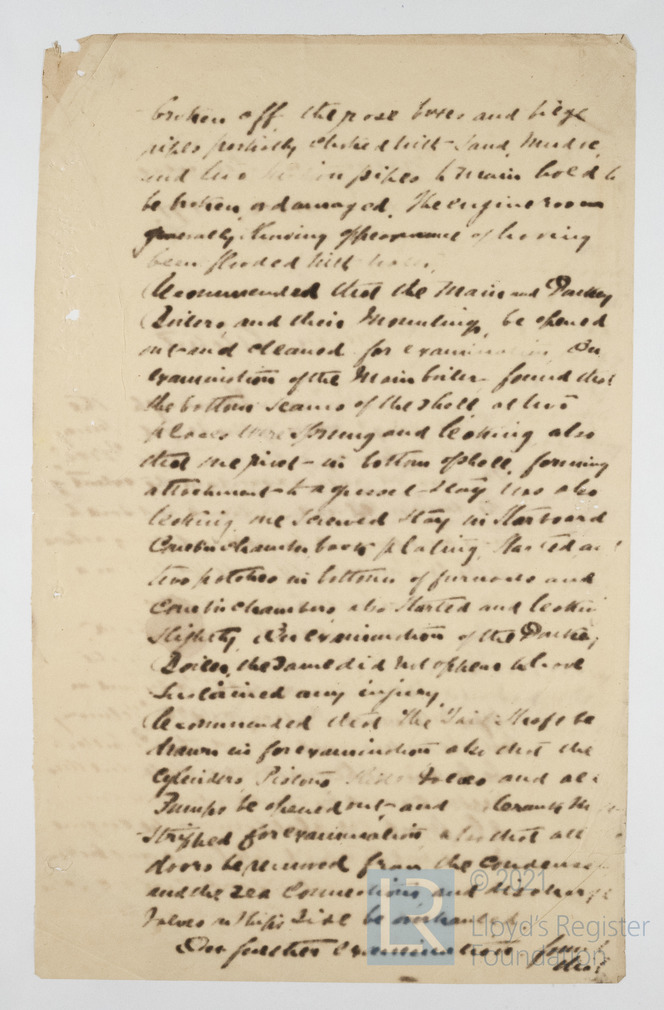 broken off the rose boxes and bilge
pipes partially choked with sand, mud &c,
and two pipes to main boiler
be broken, or damaged. The engine room
generally showing appearance of having
been flooded with water,
Recommended that the Main and Donkey
Boilers, and their Mountings, be opened
out and cleaned for examination, On
examination of the Main boiler found that
the bottom seams of the shell at two
places were sprung and leaking, also
that one rivet in bottom of shell, forming
attachment to a gusset stay, was also
leaking, one screwed stay in Starboard
Combn chamber back plating, Started and
two patches in bottoms of furnaces and
Combn chambers, also Started and leaking
slightly, On examination of the Donkey
Boiler, the same did not appear to have
Sustained any injury.
Recommended that The Tail Shaft be
drawn in for examination also that the
Cylinders Pistons Slide Valves and all
Pumps be opened out and Crank
Stripped for examination, also that all
doors be removed from the Condenser
and the Sea Connections, and discharge
Valves on Ships Side be overhauled.
On further examination found
that
© 2021
Lloyd's Register
Foundation
LR